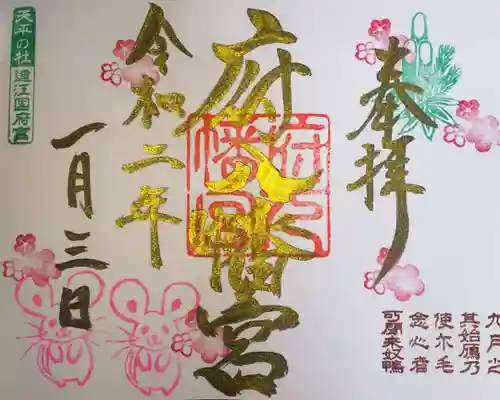 奉拝
府八幡宮
令和二年
一月三日
天平の社 遠江国府宮
府八幡宮
九月之
其始鴈乃
使尓毛
念心者
可聞来奴鴨